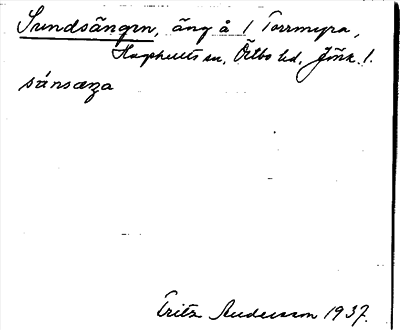 Sundsängen, äng å 1 Torrmyra,
Hagshults sn, Östbo hd, Jönk. l.
súnsæŋa
Fritz Andersson 1937.